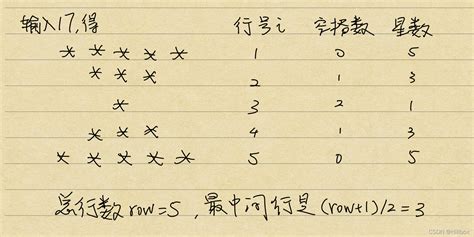 输入17,得 行号i 空格数 星数
* * * * * 1 0 5
* * * 2 1 3
* 3 2 1
* * * 4 1 3
* * * * * 5 0 5
总行数row=5,最中间行是(row+1)/2=3